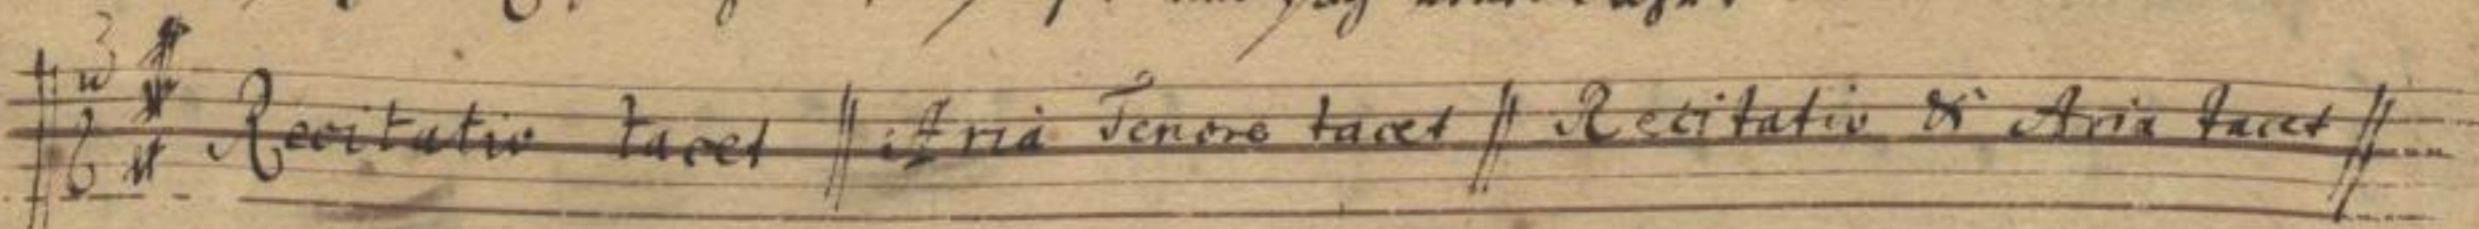 Recitativ tacet || Aria Tenore tacet || Recitativ & Aria tacet ||